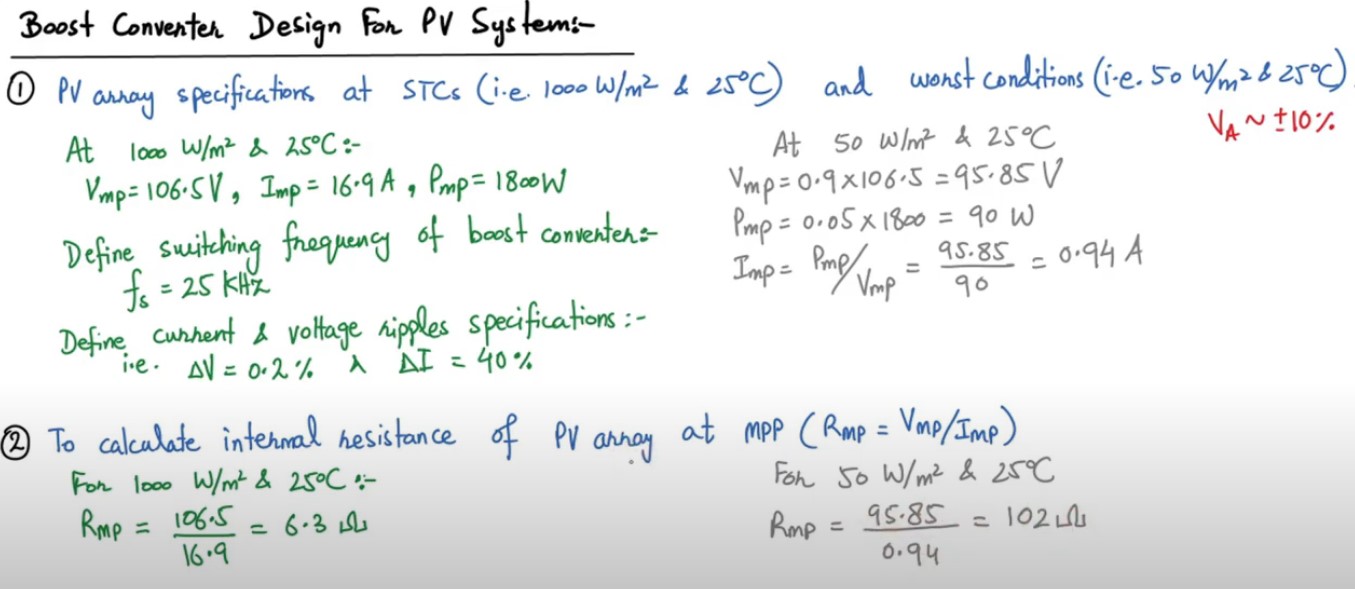 Boost Converter Design For PV System:-
① PV array specifications at STCs (i.e. 1000 W/m² & 25°C) and worst conditions (i.e. 50 W/m² & 25°C).
V_A ~ ±10%
At 1000 W/m² & 25°C :-
Vmp = 106.5V, Imp = 16.9 A, Pmp = 1800W
Define switching frequency of boost converter:-
fs = 25 kHz
Define current & voltage ripples specifications :-
i.e. ΔV = 0.2% & ΔI = 40%
At 50 W/m² & 25°C
Vmp = 0.9 × 106.5 = 95.85 V
Pmp = 0.05 × 1800 = 90 W
Imp = Pmp/Vmp = 95.85/90 = 0.94 A
② To calculate internal resistance of PV array at MPP (RMP = VMP/IMP)
For 1000 W/m² & 25°C :-
RMP = 106.5/16.9 = 6.3 Ω
For 50 W/m² & 25°C
Rmp = 95.85/0.94 = 102 Ω